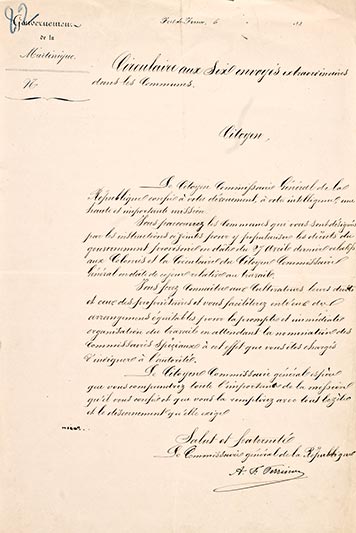 Gouvernement
de la
Martinique.
Fort de France, le
N°
Circulaire aux Six envoyés extraordinaires
dans les Communes.
Citoyen,
Le Citoyen Commissaire Général de la
République confie à votre dévouement, à votre intelligence, une
haute et importante mission.
Vous parcourrez les Communes que vous sont désignées
par les instructions ci jointes pour y populariser les décrets du
gouvernement provisoire en date du 27 Avril dernier relatifs
aux Colonies et la Circulaire du Citoyen Commissaire
Général en date de ce jour relative au travail.
Vous ferez connaître aux Cultivateurs leurs droits
et ceux des propriétaires et vous faciliterez entr'eux des
arrangements équitables pour la prompte et immédiate
organisation du travail en attendant la nomination des
Commissaires spéciaux à cet effet que vous êtes chargés
d'indiquer à l'autorité.
Le Citoyen Commissaire général espère
que vous comprendrez toute l'importance de la mission
qu'il vous confie et que vous la remplirez avec tout le zèle
et le discernement qu'elle exige.
Salut et fraternité
Le Commissaire général de la République
A. F. Perrinon